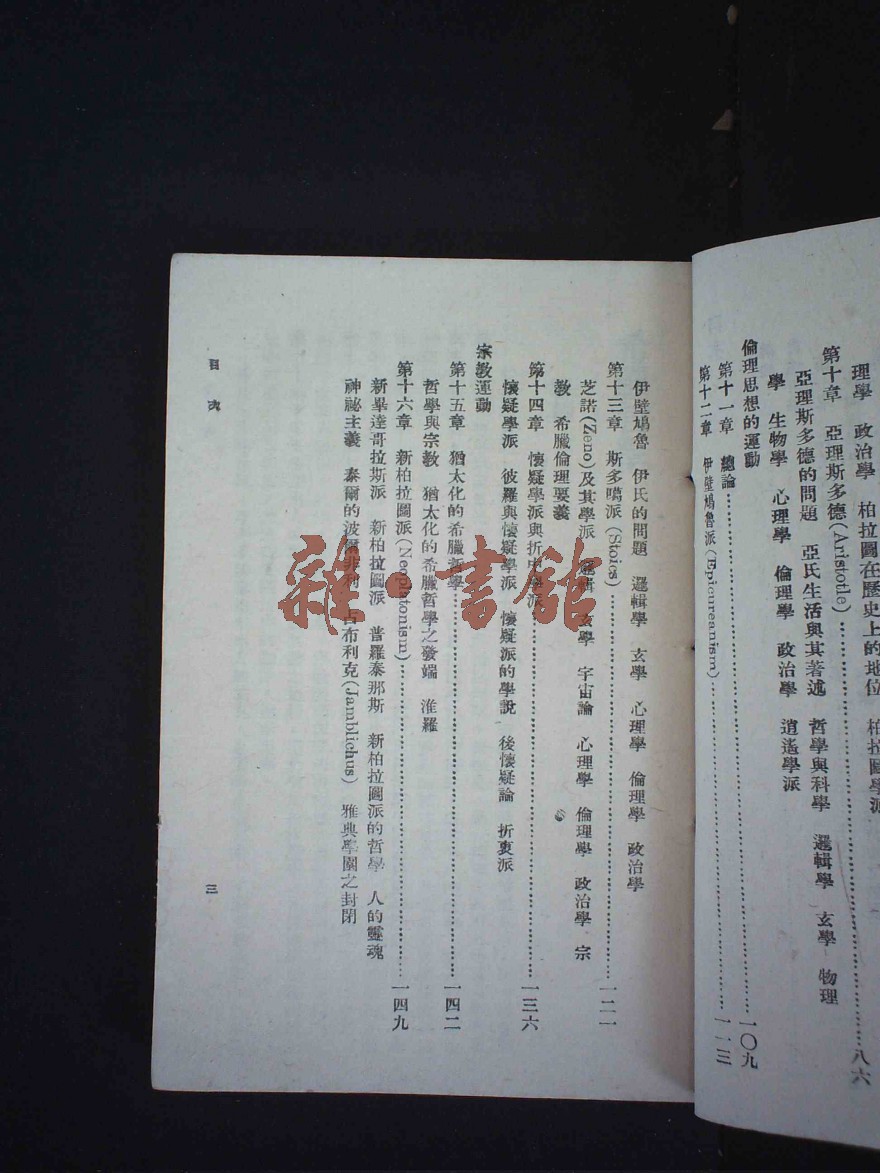 理學 政治學 柏拉圖在歷史上的地位 柏拉圖學派
第十章 亞理斯多德(Aristotle)……八六
亞理斯多德的問題 亞氏生活與其著述 哲學與科學 邏輯學 玄學 物理
學 生物學 心理學 倫理學 政治學 逍遙學派
倫理思想的運動
第十一章 總論……一〇九
第十二章 伊壁鳩魯派(Epicureanism)……一一三
伊壁鳩魯 伊氏的問題 邏輯學 玄學 心理學 倫理學 政治學
第十三章 斯多噶派(Stoics)……一二一
芝諾(Zeno)及其學派 邏輯 玄學 宇宙論 心理學 倫理學 政治學 宗
教 希臘倫理要義
第十四章 懷疑學派與折中學派……一三六
懷疑學派 彼羅與懷疑學派 懷疑派的學說 後懷疑論 折衷派
宗教運動
第十五章 猶太化的希臘哲學……一四二
哲學與宗教 猶太化的希臘哲學之發端 淮羅
第十六章 新柏拉圖派(Neoplatonism)……一四九
新畢達哥拉斯派 新柏拉圖派 普羅泰那斯 新柏拉圖派的哲學 人的靈魂
神祕主義 泰爾的波爾非利 占布利克(Jamblichus) 雅典學園之封閉
目次
三
雜·書館